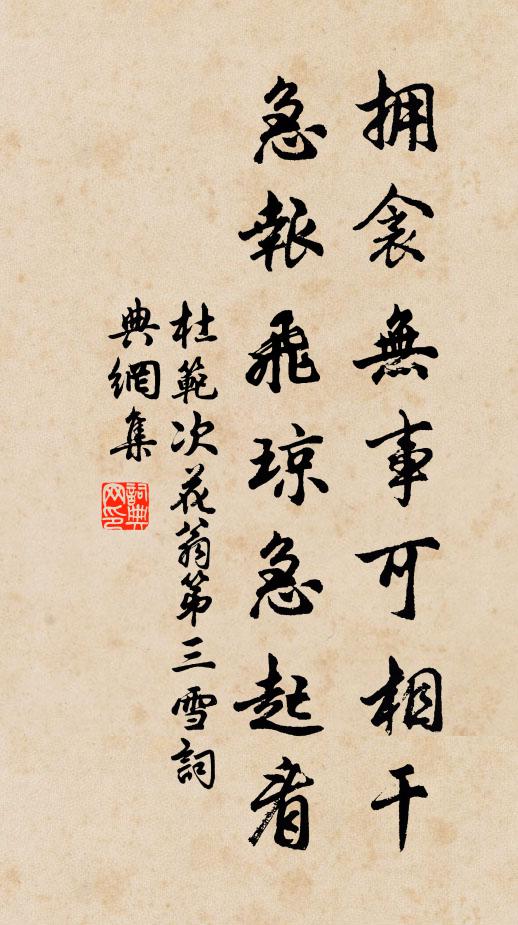 拥衾無事可相干
急報飛琼急起看
杜範次花翁第三雪詞
典網集
詞典網印